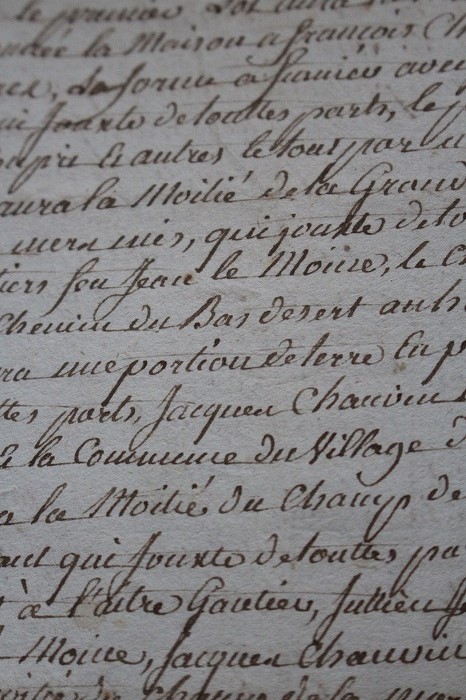 le premier Lot aura
la Maison a françois Ch
La forme a fumier avec
qui Jouxte de touttes parts, le
Et autres le tout par
aura la Moitié de la Grand
mis, qui jouxte de to
tiers feu Jean le Moine, le C
Chemin du Bas desert au
une portion de terre En p
ttes parts, Jacques Chauvin
& la Commune du Village d
a la Moitié du Champ de
qui Jouxte de touttes pa
à l'aitre Gautier, Jullien J
Moine, Jacques Chauvin
de la